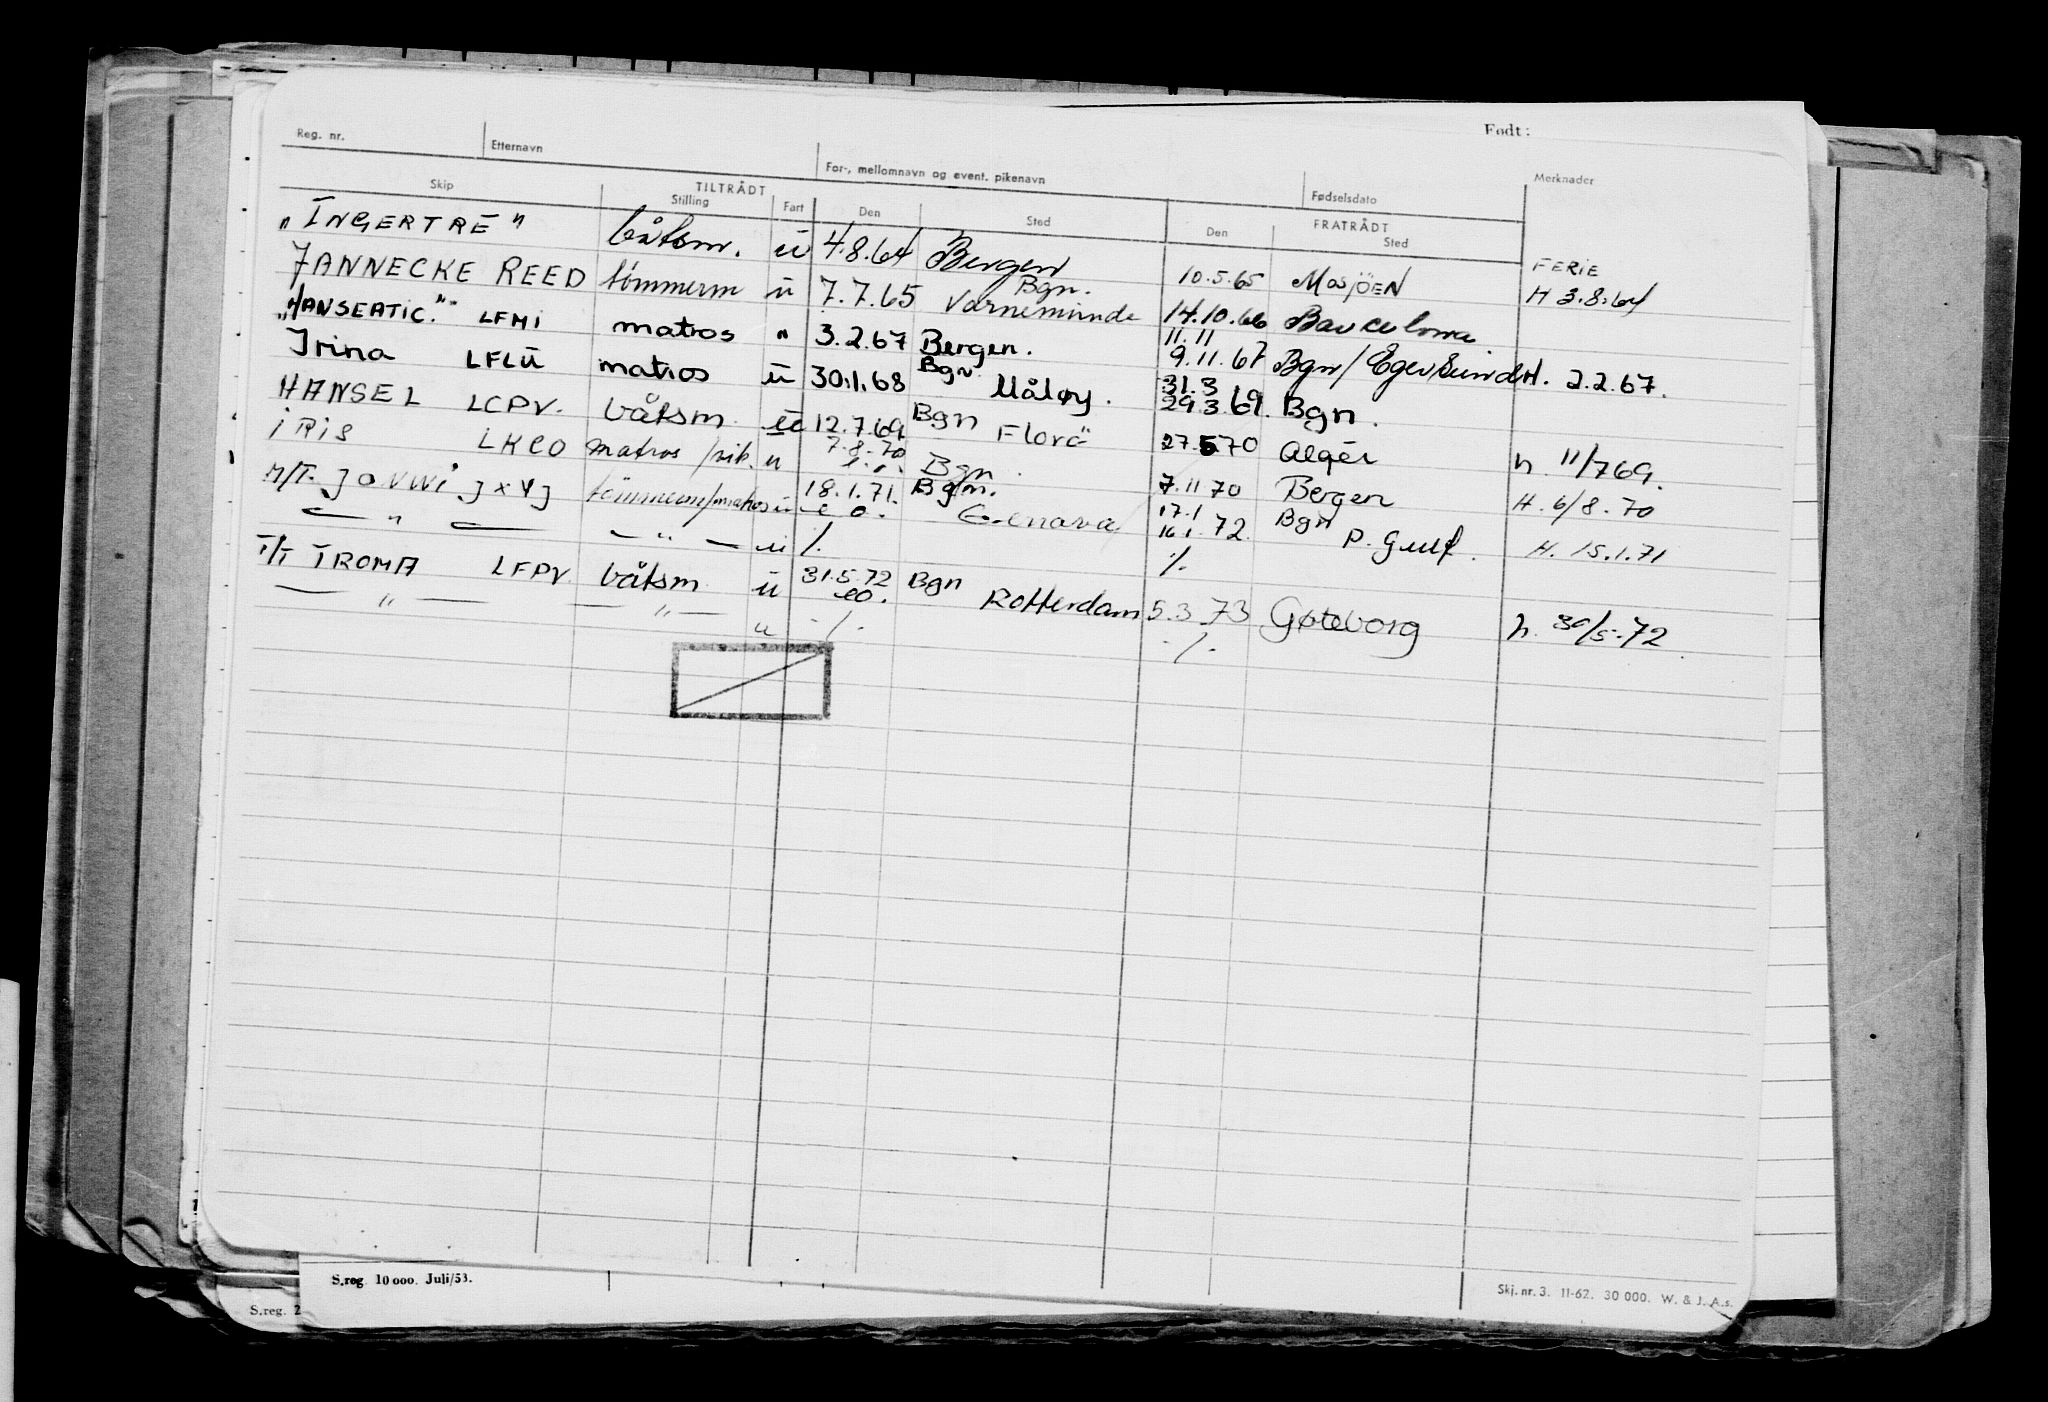 Født:
Reg. nr. Etternavn For-, mellomnavn og event. pikenavn Fødselsdato Merknader
TILTRÅDT FRATRÅDT
Skip Stilling Fart Den Sted Den Sted
"INGERTRE" båtsm. ü 4.8.64 Bergen 10.5.65 MOSJÖEN FERIE H 3.8.64
JANNECKE REED tømmerm ü 7.7.65 Bgn. Varnemünde 14.10.66 Barcelona
"HANSEATIC." LFMI matros " 3.2.67 Bergen. 11.11 9.11.67 Bgn/Egersund H. 2.2.67.
Irina LFLÜ matros ü 30.1.68 Bgn. Måløy. 31.3 29.3.69. Bgn.
HANSEL LCPV. båtsm ü 12.7.69 Bgn Florö 27.5.70 Algér h. 11/7 69.
IRIS LKCO matros ü 7.8.70 Bgn. 7.11 70 Bergen H. 6/8-70
M/T. JXYJ tömmerm/matros ü 18.1.71. Bgn. 17.1 16.1.72. Bgn P. Gulf. H. 15.1.71
— " — — " — ü ./. ./.
T/T TROMA LFPV båtsm ü 31.5.72 Bgn Rotterdam 5.3.73 Gøteborg h. 30/5-72.
— " — — " — u ./. ./.
S.reg. 10 000. Juli/53.
Skj. nr. 3. 11-62. 30 000. W. & J. A.s.
S.reg. 2